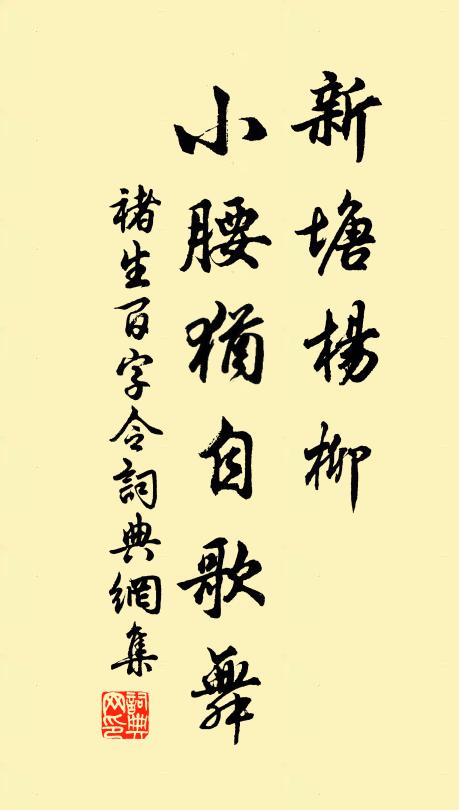 新塘楊柳
小腰猶自歌舞
褚生百字令詞典網集
詞典網印